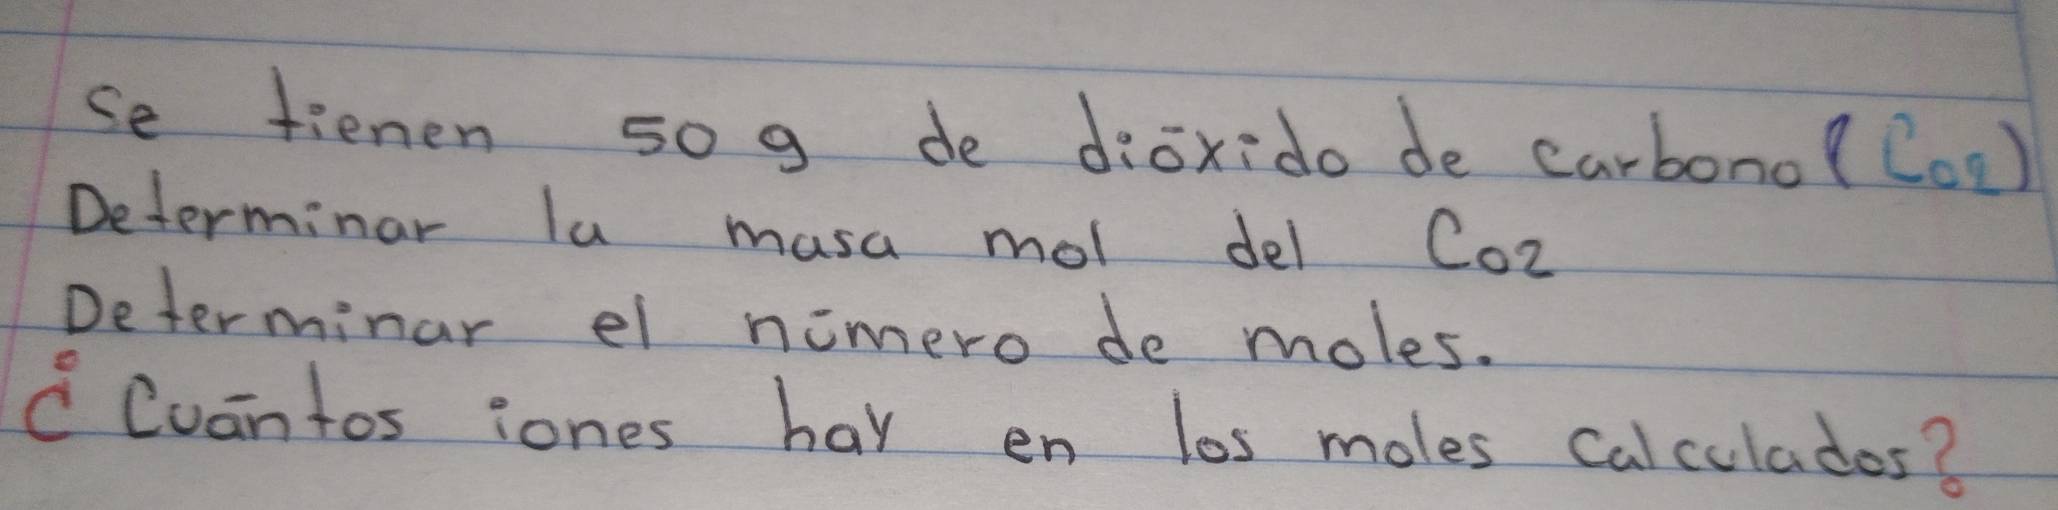 se tienen 50 g de dióxido de carbono (Co2)
Determinar la masa mol del Co2
Determinar el número de moles.
¿Cuántos iones hay en los moles calculados?